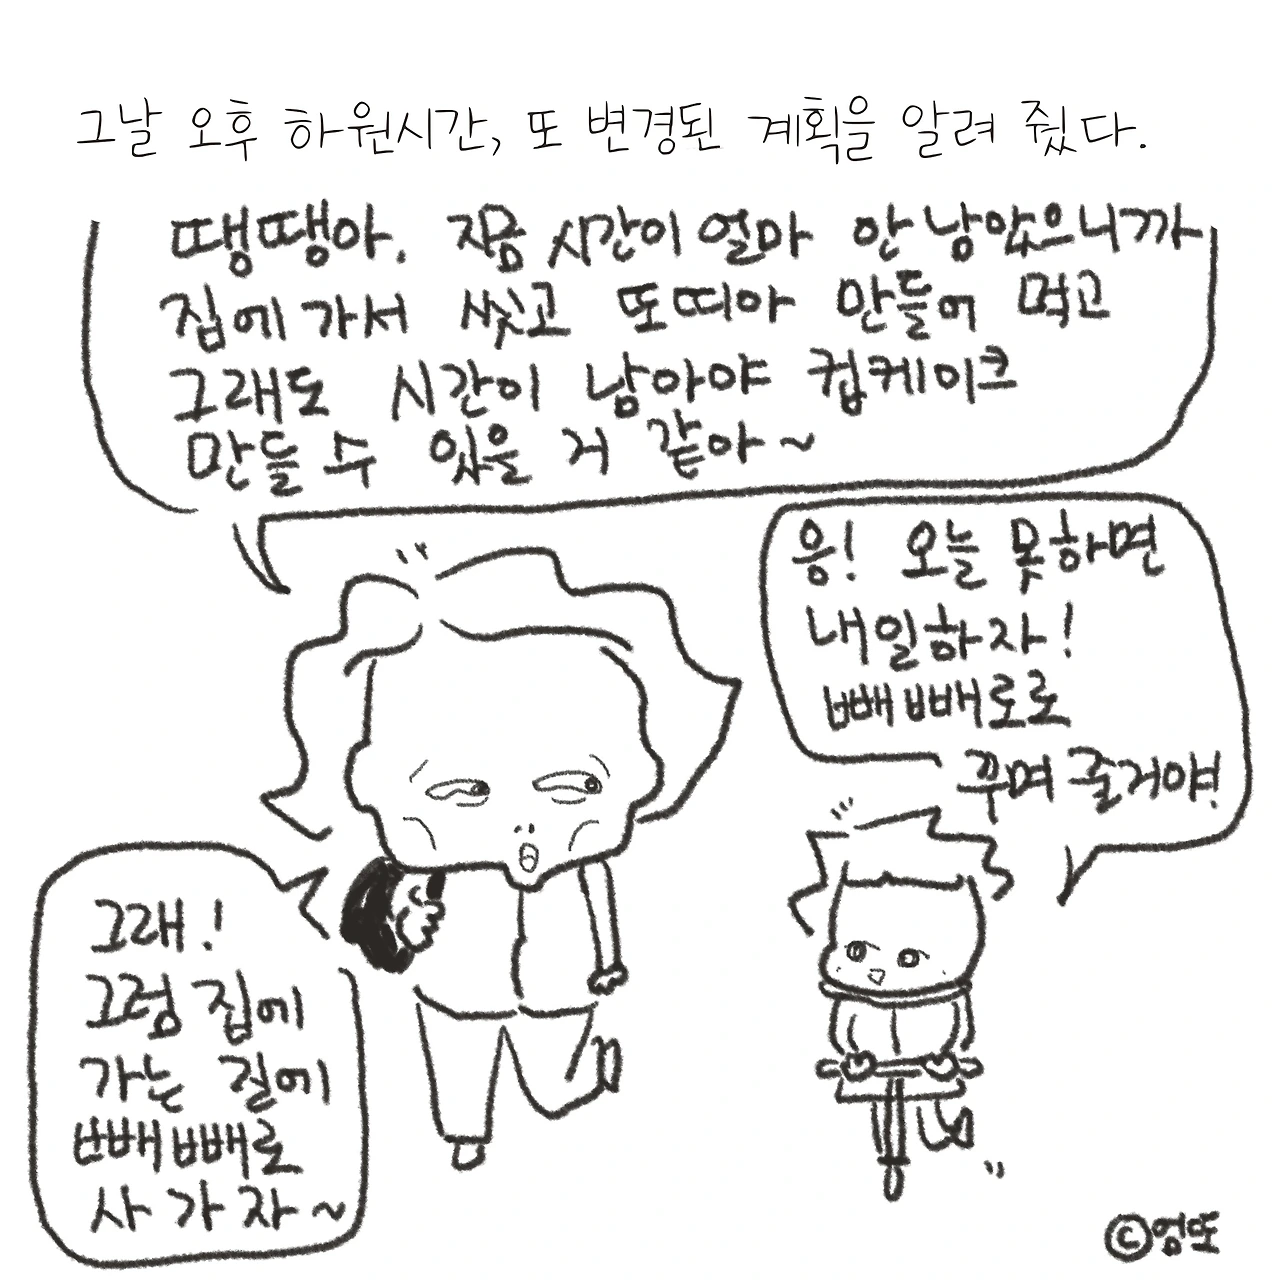 그날 오후 하원시간, 또 변경된 계획을 알려 줬다.
땡땡아. 지금 시간이 얼마 안 남았으니까
집에 가서 씻고 또띠아 만들어 먹고
그래도 시간이 남아야 컵케이크
만들 수 있을 거 같아~
응! 오늘 못하면
내일하자!
빼빼로로
꾸며 줄거야!
그래!
그럼 집에
가는 길에
빼빼로
사 가자~
©엄또